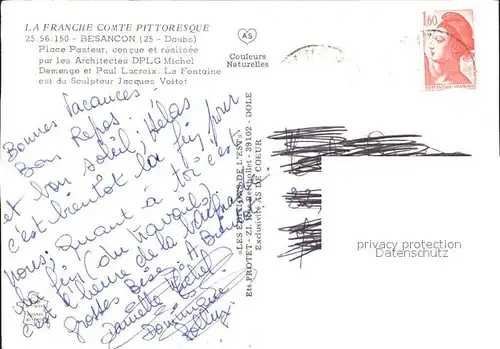 LA FRANCHE COMTE PITTORESQUE
25 56.150 - BESANCON (25 - Doubs)
Place Pasteur, conçue et réalisée
par les Architectes DPLG Michel
Demenge et Paul Lacroix. La Fontaine
est du Sculpteur Jacques Voitot
AS
Couleurs
Naturelles
1,60
REPUBLIQUE FRANÇAISE
Bonnes Vacances.
Bon Repos.
et bon soleil. Hélas
c'est bientôt la fin pour
nous. Quant à toi c'est
la fin (du travail)
c'est l'heure de la
Grosses Bises. A Bientôt
Danielle Michel
Dominique
"LES EDITIONS DE L'EST"
Ets PROTET - Z.I. Rue Berthollet - 39102 - DOLE
Exclusivité AS DE COEUR
privacy protection
Datenschutz